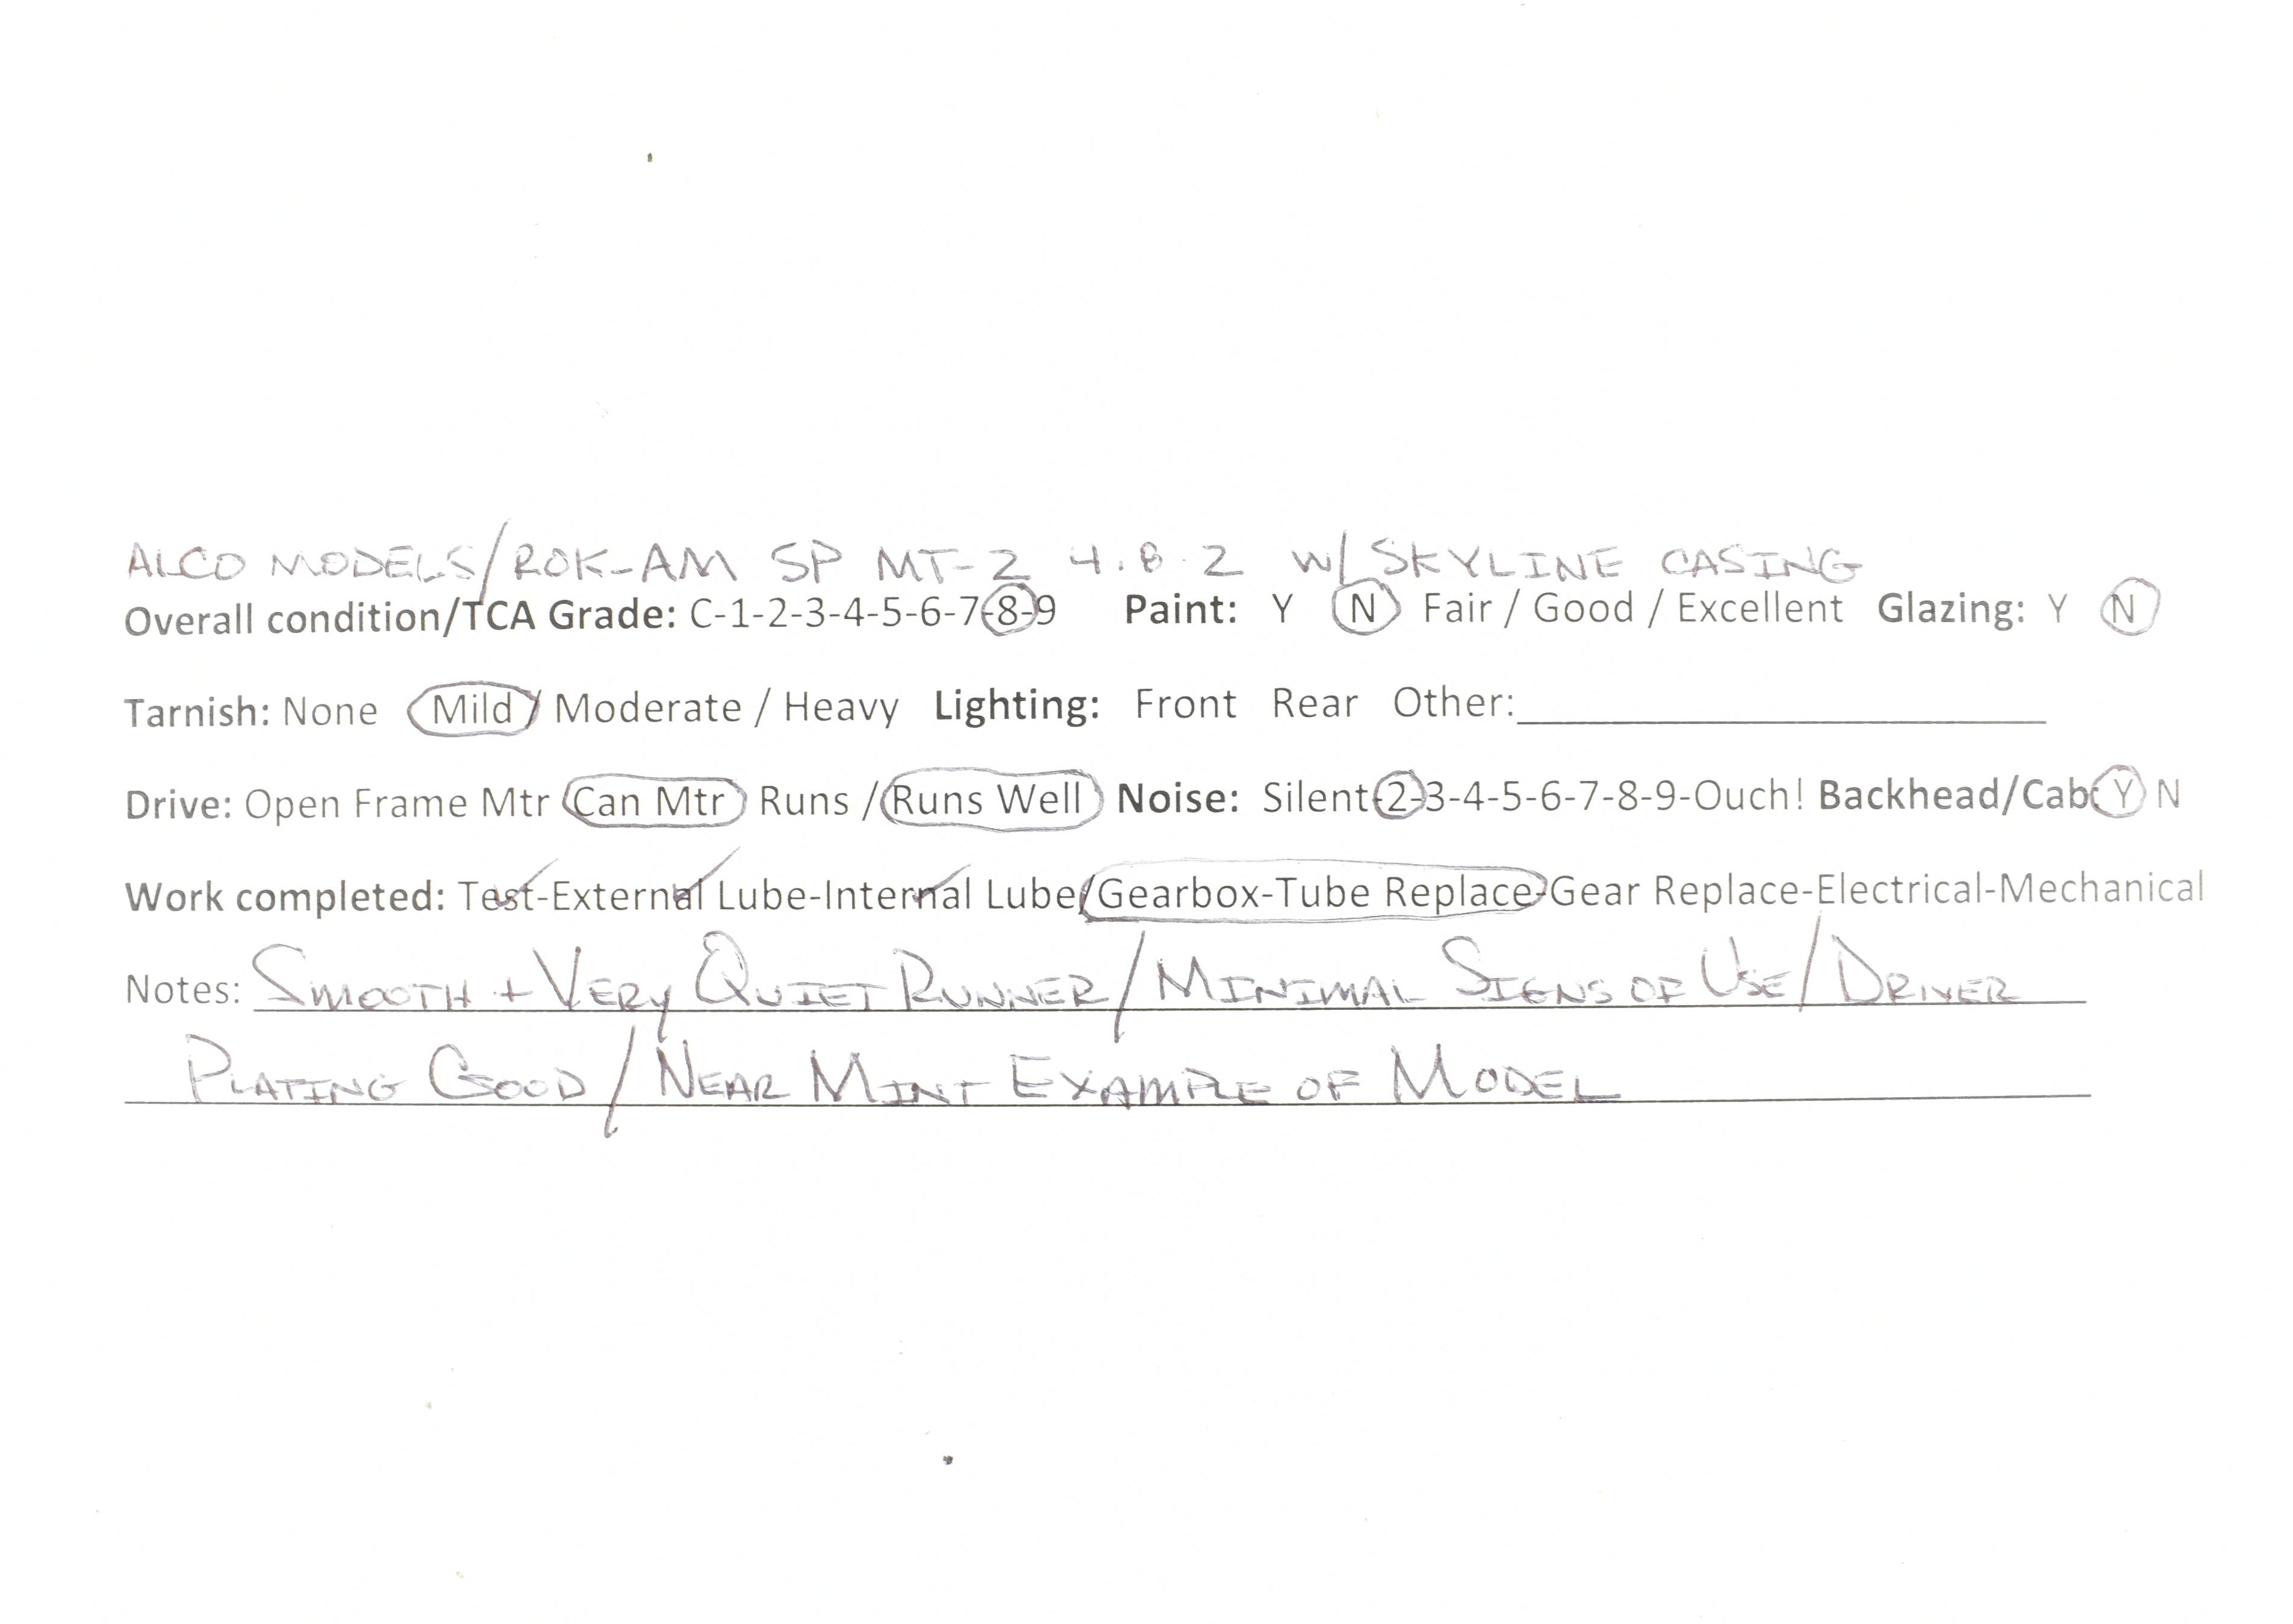 ALCO MODELS/ROK-AM SP MT-2 4.8.2 W/SKYLINE CASING
Overall condition/TCA Grade: C-1-2-3-4-5-6-7-8-9 Paint: Y N Fair / Good / Excellent Glazing: Y N
Tarnish: None Mild / Moderate / Heavy Lighting: Front Rear Other:
Drive: Open Frame Mtr Can Mtr Runs / Runs Well Noise: Silent-2-3-4-5-6-7-8-9-Ouch! Backhead/Cab: Y N
Work completed: Test-External Lube-Internal Lube/Gearbox-Tube Replace-Gear Replace-Electrical-Mechanical
Notes: SMOOTH + VERY QUIET RUNNER/MINIMAL SIGNS OF USE/DRIVER
PLATING GOOD/NEAR MINT EXAMPLE OF MODEL